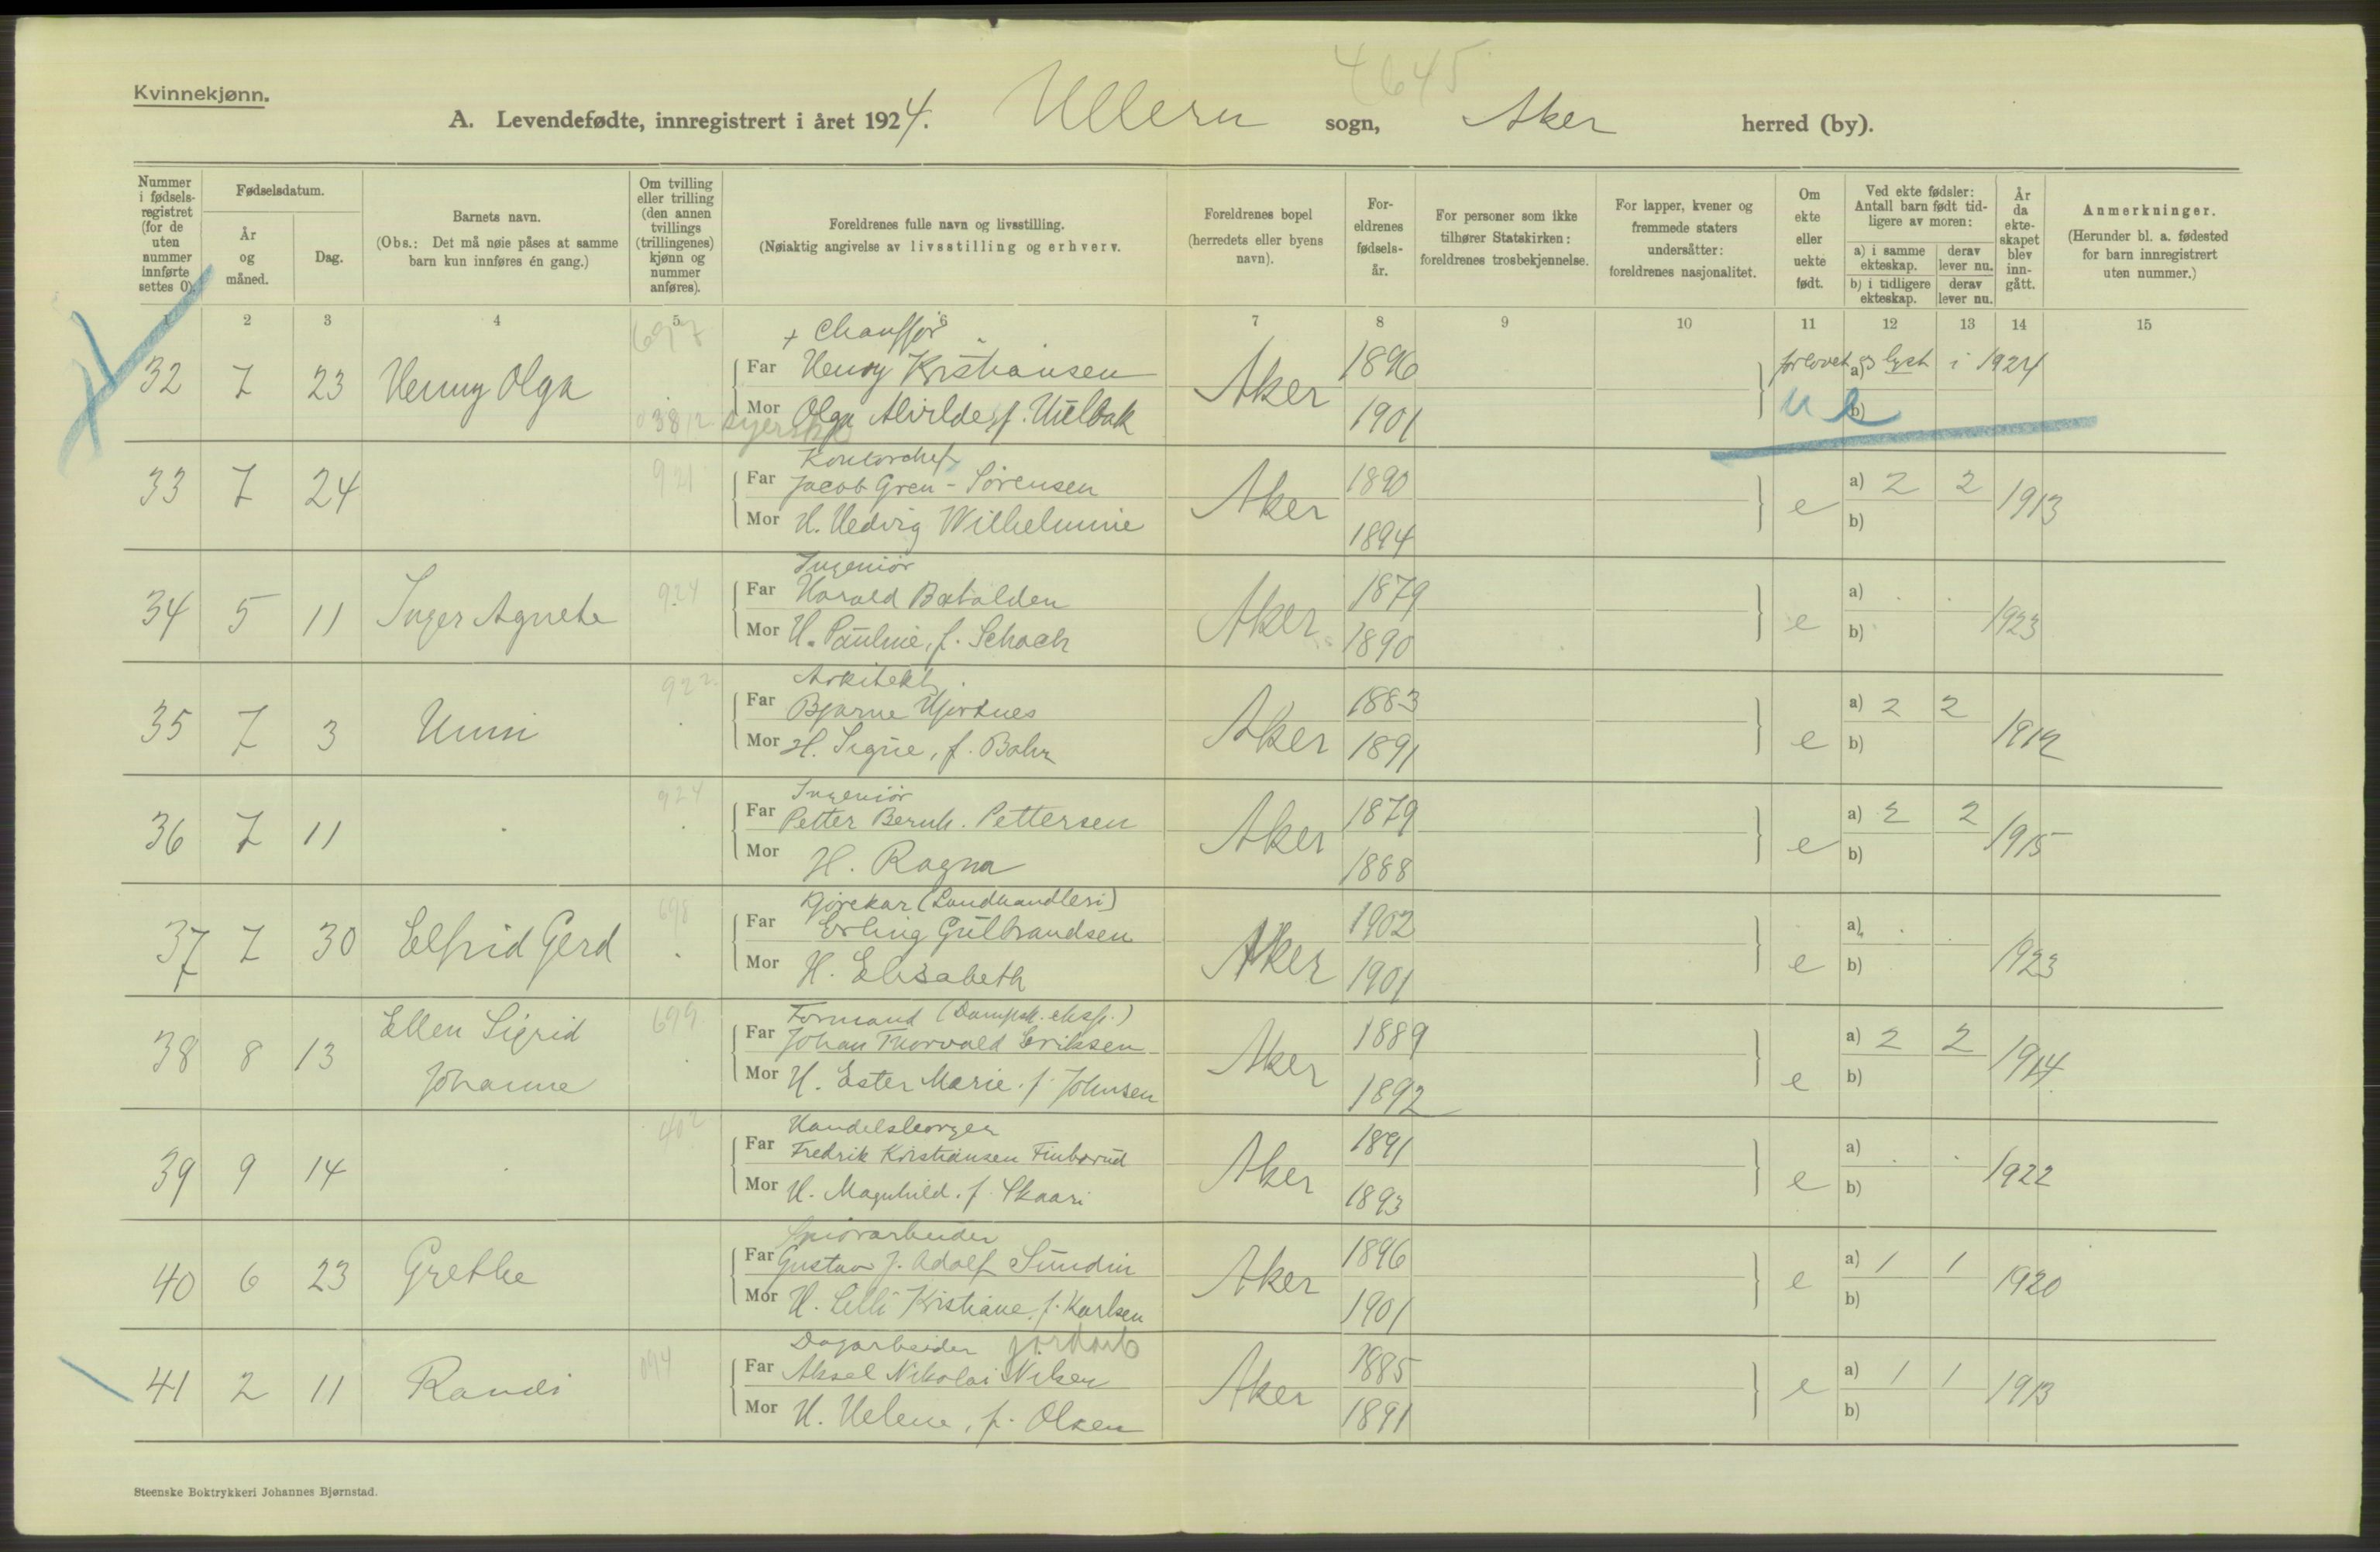 4645
Kvinnekjønn.
A. Levendefødte, innregistrert i året 1924. Ullern sogn, Aker herred (by).
Nummer i fødsels-registret (for de uten nummer innførte settes 0).
Fødselsdatum.
År og måned.
Dag.
Barnets navn.
(Obs.: Det må nøie påses at samme barn kun innføres én gang.)
Om tvilling eller trilling (den annen tvillings (trillingenes) kjønn og nummer anføres).
Foreldrenes fulle navn og livsstilling.
(Nøiaktig angivelse av livsstilling og erhverv.
Foreldrenes bopel (herredets eller byens navn).
For-eldrenes fødsels-år.
For personer som ikke tilhører Statskirken: foreldrenes trosbekjennelse.
For lapper, kvener og fremmede staters undersåtter: foreldrenes nasjonalitet.
Om ekte eller uekte født.
Ved ekte fødsler: Antall barn født tid-ligere av moren:
a) i samme ekteskap. derav lever nu.
b) i tidligere ekteskap. derav lever nu.
År da ekte-skapet blev inn-gått.
Anmerkninger.
(Herunder bl. a. fødested for barn innregistrert uten nummer.)
1 2 3 4 5 6 7 8 9 10 11 12 13 14 15
697
+ Chauffør
32 7 23 Henny Olga Far Henry Kristiansen Aker 1896 forlovet a) og lyst i 1924
Mor Olga Alvilde, f. Ullbak 1901 u e b)
syerske
Kontorchef
33 7 24 921 Far Jacob Gren-Sørensen Aker 1890 e a) 2 2 1913
Mor H. Hedvig Wilhelmine 1894 b)
Ingeniør
34 5 11 Inger Agnete 924 Far Harald Botolden Aker 1879 e a) . . 1923
Mor H. Pauline, f. Schach 1890 b)
Arkitekt
35 7 3 Unni 922 Far Bjarne Hjortnes Aker 1883 e a) 2 2 1912
Mor H. Signe, f. Bahr 1891 b)
Ingeniør
36 7 11 924 Far Petter Bernh. Pettersen Aker 1879 e a) 2 2 1915
Mor H. Ragna 1888 b)
Kjørekar (Landhandleri)
37 7 30 Elfrid Gerd 698 Far Erling Gulbrandsen Aker 1902 e a) . . 1923
Mor H. Elisabeth 1901 b)
Formand (Dampsk. eksp.)
38 8 13 Ellen Sigrid Johanne 699 Far Johan Thorvald Eriksen Aker 1889 e a) 2 2 1914
Mor H. Ester Marie. f. Johnsen 1892 b)
Handelsborger
39 9 14 402 Far Fredrik Kristiansen Finborud Aker 1891 e a) . . 1922
Mor H. Magnhild. f. Skaari 1893 b)
40 6 23 Grethe Far Gustav J. Adolf Sundin Aker 1896 e a) 1 1 1920
Mor H. Lilli Kristiane, f. Karlsen 1901 b)
Dagarbeider jordarb
41 2 11 Randi 094 Far Aksel Nikolai Nilsen Aker 1885 e a) 1 1 1913
Mor H. Helene, f. Olsen 1891 b)
Steenske Boktrykkeri Johannes Bjørnstad.